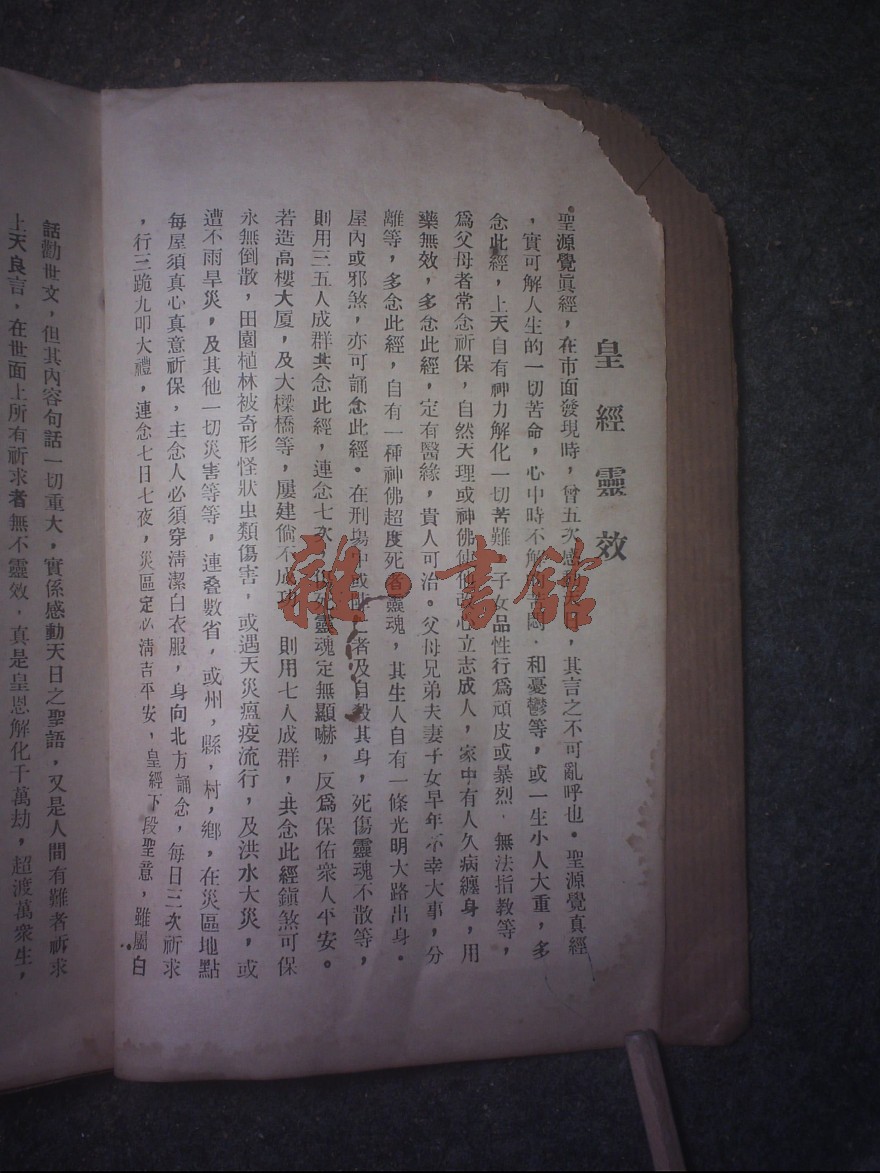 皇經靈效
聖源覺眞經，在市面發現時，曾五次感動，其言之不可亂呼也。聖源覺真經
，實可解人生的一切苦命，心中時不解悶．和憂鬱等，或一生小人大重，多
念此經，上天自有神力解化一切苦難。子女品性行爲頑皮或暴烈．無法指教等，
爲父母者常念祈保，自然天理或神佛使他改心立志成人，家中有人久病纏身，用
藥無效，多念此經，定有醫緣，貴人可治。父母兄弟夫妻子女早年不幸大事，分
離等，多念此經，自有一種神佛超度死者靈魂，其生人自有一條光明大路出身。
屋內或邪煞，亦可誦念此經。在刑場中或亡者及自殺其身，死傷靈魂不散等，
則用三五人成群共念此經，連念七次，傷死靈魂定無顯嚇，反爲保佑衆人平安。
若造高樓大厦，及大樑橋等，屢建倘不成功，則用七人成群，共念此經鎭煞可保
永無倒散，田園植林被奇形怪狀虫類傷害，或遇天災瘟疫流行，及洪水大災，或
遭不雨旱災，及其他一切災害等等，連叠數省，或州，縣，村，鄉，在災區地點
每屋須真心真意祈保，主念人必須穿清潔白衣服，身向北方誦念，每日三次祈求
，行三跪九叩大禮，連念七日七夜，災區定必清吉平安，皇經下段聖意，雖屬白
話勸世文，但其內容句話一切重大，實係感動天日之聖語，又是人間有難者祈求
上天良言，在世面上所有祈求者無不靈效，真是皇恩解化千萬劫，超渡萬衆生，
雜·書館